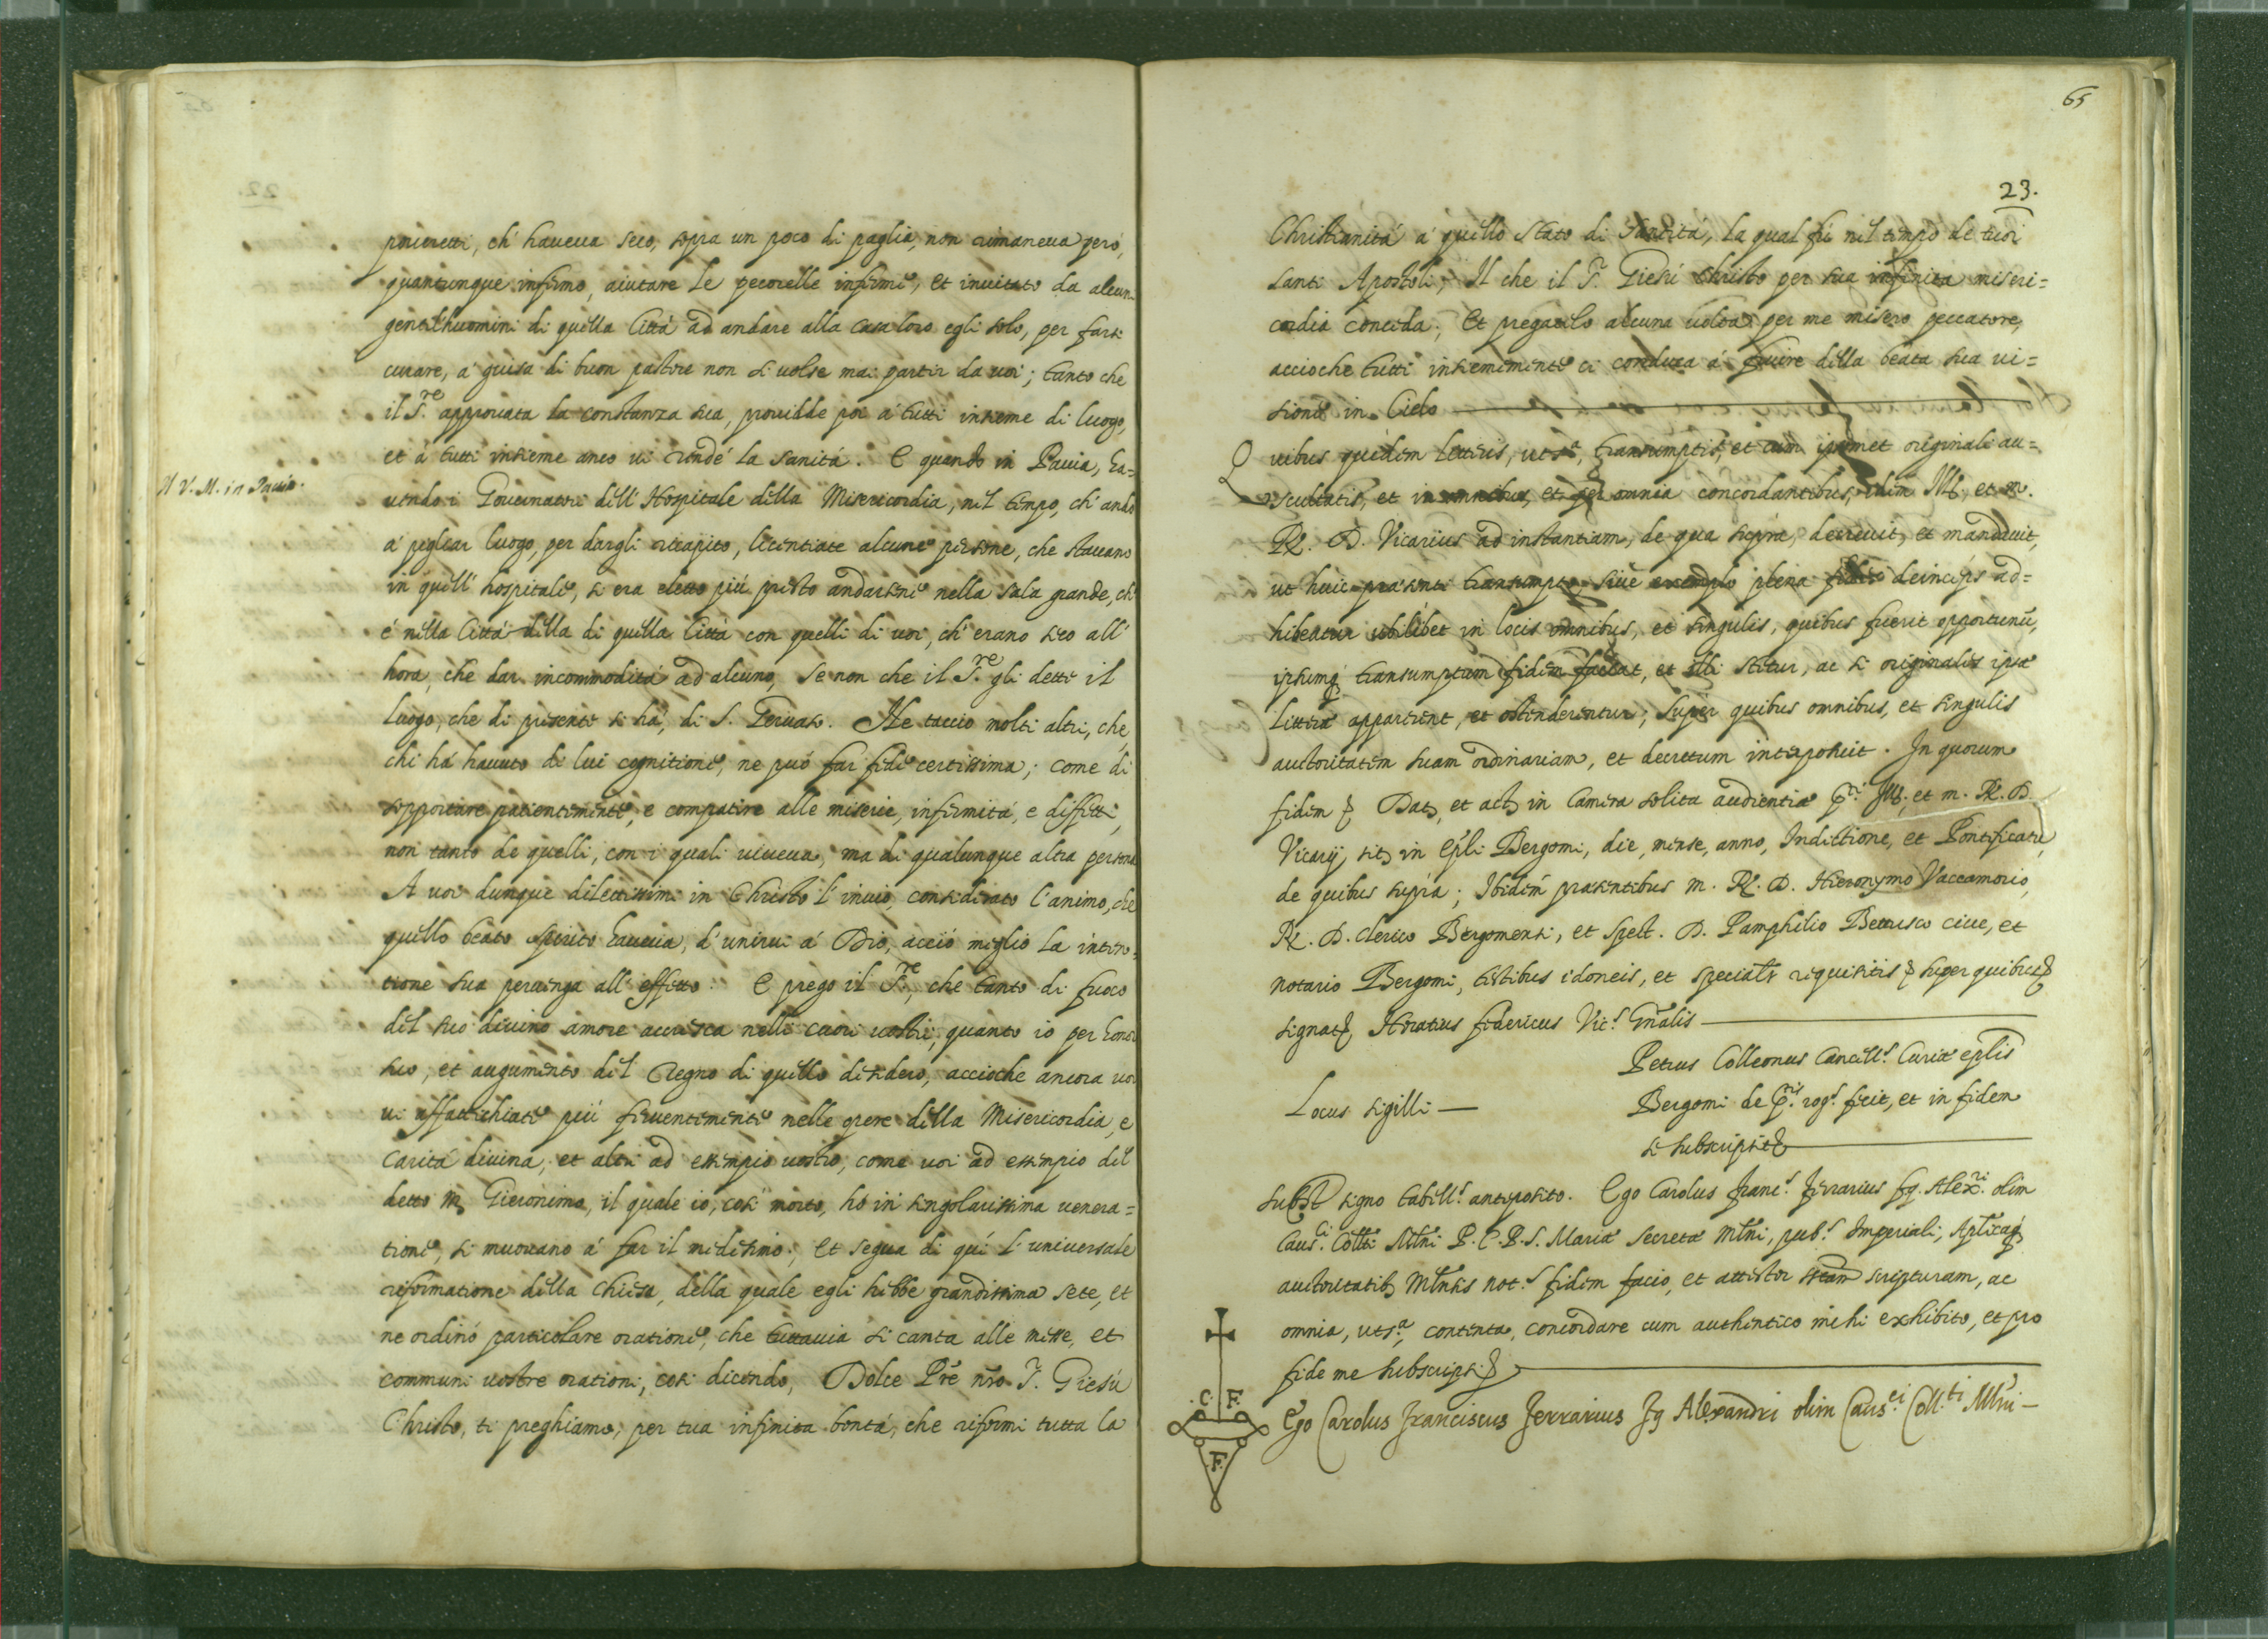 poueretti, ch' haueua seco, sopra un poco di paglia, non rimaneua però,
quantunque infirmo, aiutare le pecorelle infirme, et inuitato da alcuni
gentilhuomini di quella Città ad andare alla casa loro egli solo, per farsi
curare, a' guisa di buon pastore non si uolse mai partir da uoi; tanto che
il S.re approuata la constanza sua, prouidde poi a' tutti insieme di luogo,
et à tutti insieme anco ui rendé la sanità. E quando in Pauia, ha=
Il V. M. in Pauia.
uendo i Gouernatori dell' Hospitale della Misericordia, nel tempo, ch' andò
a' pegliar luogo, per dargli ricapito, licentiate alcune persone, che stauano
in quell' hospitale, si era eletto più presto andarsene nella sala grande, ch'
é nella Città della di quella Città con quelli di uoi, ch' erano seco all'
hora, che dar incommodità ad alcuno, se non che il S.re gli dette il
luogo, che di presente si há, di S. Geruaso. Ne taccio molti altri, che
chi há hauuto di lui cognitione, ne puó far fede certissima; come di
sopportare patientemente, e compatire alle miserie, infirmità, e diffetti,
non tanto de quelli, con i quali uiueua, ma di qualunque altra persona
A uoi dunque dilettissimi in Christo l' inuio, considerato l' animo, che
quello beato spirito haueua, d' unirui á Dio, acció meglio la inten=
tione sua peruenga all' effetto. E prego il S.re, che tanto di fuoco
del suo diuino amore accresca nelli cuori uostri, quanto io per honor
suo, et augumento del Regno di quello desidero, accioche ancora uoi
ui affatichiate piú feruentemente nelle opere della Misericordia, e
carità diuina, et altri ad essempio uostro, come uoi ad essempio del
detto M. Gieronimo, il quale io, cosi morto, hó in singolarissima uenera=
tione, si muouano á far il medesimo; Et segua di quí l' uniuersale
riformatione della Chiesa, della quale egli hebbe grandissima sete, et
ne ordinó particolare oratione, che tuttauia si canta alle messe, et
communi uostre orationi, cosi dicendo, Dolce Pre nro S. Giesù
Christo, ti preghiamo, per tua infinita bontà, che riformi tutta la
65
23.
Christianità a' quello stato di santità, la qual fú nel tempo de tuoi
santi Apostoli, Il che il S. Giesù Christo per sua infinita miseri=
cordia conceda; Et pregatelo alcuna uolta per me misero peccatore,
accioche tutti insiememente ci conduca á fruire della beata sua ui=
sione in Cielo
Quibus quidem litteris, ut s.a, transumptis, et cum ipsomet originali au=
scultatis, et in omnibus, et per omnia concordantibus, idem Ill. et m.
R. D. Vicarius ad instantiam, de qua supra, decreuit, et mandauit,
ut huic praesenti transumpto, siue exemplo plena fides deinceps ad=
hibeatur ubilibet in locis omnibus, et singulis, quibus fuerit opportunũ,
ipsumq; transumptum fidem faciat, et illi stetur, ac si originales ipsae
litterae apparerent, et ostenderentur; Super quibus omnibus, et singulis
auctoritatem suam ordinariam, et decretum interposuit. In quorum
fidem Dat. et act. in Camera solita audientiae p.ti Ill. et m. R. D.
Vicarij, sit. in Epli Bergomi, die, mense, anno, Indictione, et Pontificatu,
de quibus supra; Ibidem praesentibus m. R. D. Hieronymo Vaccamorio,
R. D. clerico Bergomensi, et spect. D. Pamphilio Bettusco ciue, et
notario Bergomi, testibus idoneis, et specialr requisitis super quibus
signat. Horatius Federicus Vic.s Gnalis
Petrus Colleonus Cancell.s Curiae eplis
Locus sigilli
Bergomi de p.ti rog.s fecit, et in fidem
se subscripsit
Subst signo tabell.s anteposito. Ego Carolus Franc.s Ferrarius fq. Alex.ri olim
Caus.ci Colltti Mlni P. C. P. S. Mariae Secretae Mlni, pub.s Imperiali, Aplicaq
auctoritatib. Mlnis not.s fidem facio, et attestor scripturam, ac
omnia, ut s.a contenta, concordare cum authentico mihi exhibito, et pro
fide me subscripsi
.C. F.
Ego Carolus Franciscus Ferrarius fq Alexandri olim Caus.ci Coll.ti Mlni
.F.